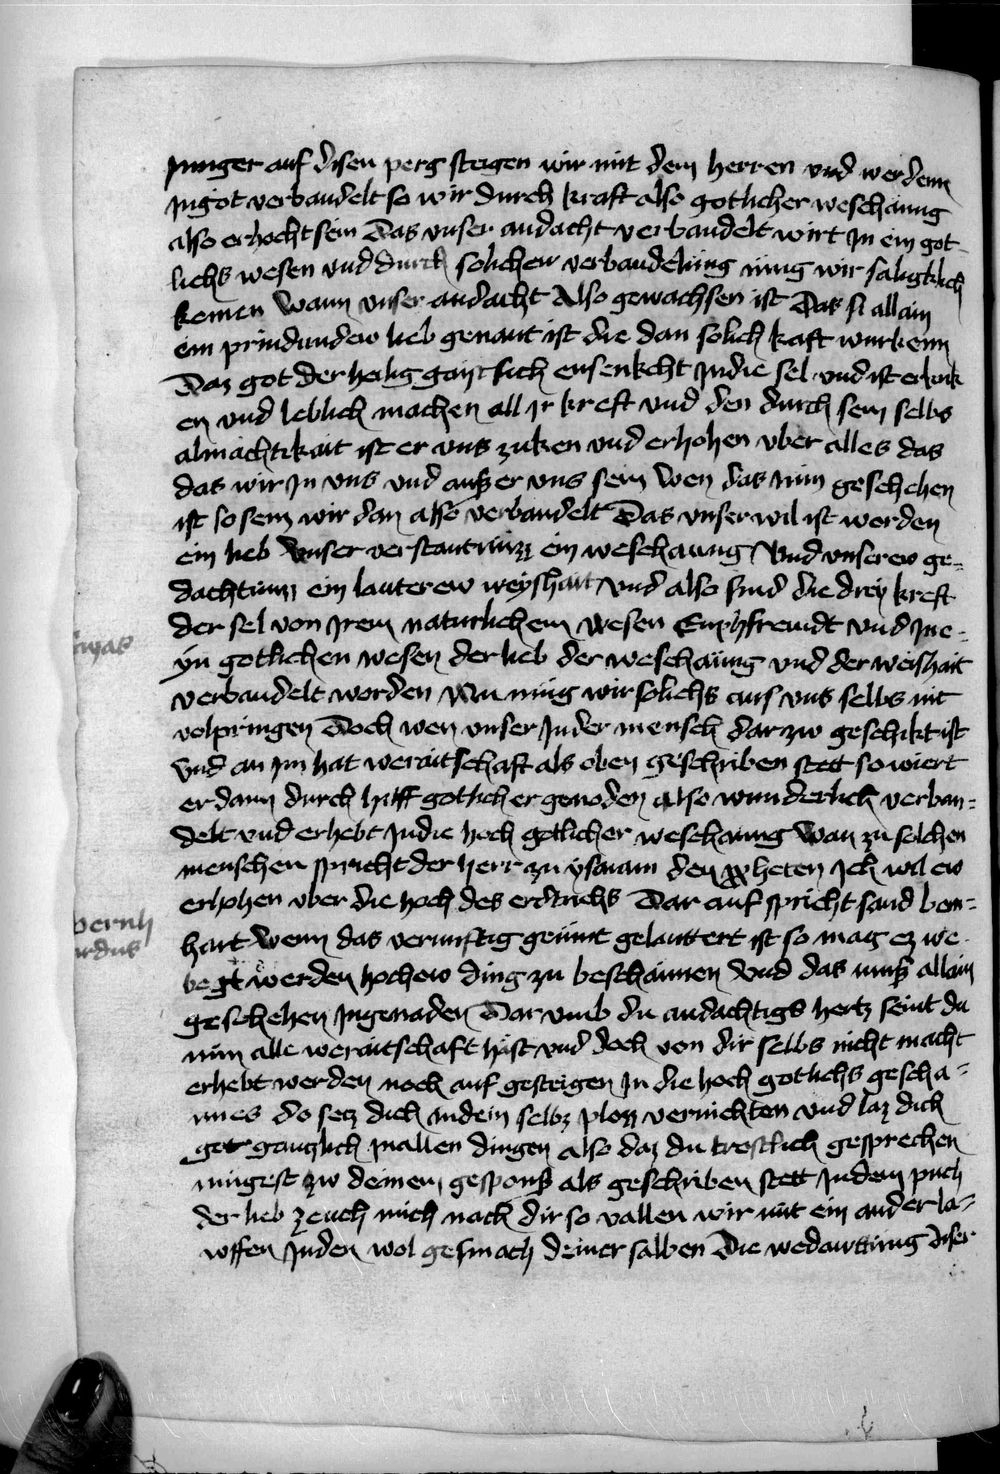 Junger auf disen perg steigen wir mit dem herren vnd werdenn
Jn got verbandelt so wir durch kraft also gotlicher weschäung
also erhocht sein Das vnser andacht verbandelt wirt Jn ein got-
lichs wesen vnd durch solichew verbandelung müg wir saligklich
kemen Wann vnser andacht Also gewachsen ist Das si allain
ein prindundew lieb genant ist die dan solich kaft wurkenn
Daz got der heilig gayst sich ensenkcht Jn die sel vnd ist erkuk
en vnd leblich machen all Jr kreft vnd den durch sein selbs
almächtikait ist er vns zuken vnd erhohen vber alles das
das wir Jn vns vnd ausz er vns sein Wen das nün geschehen
ist so sein wir dan also verbandelt Das vnser wil ist worden
ein lieb Vnser verstantnüzz ein weschaung Vnd vnserew ge-
dachtnuzz ein lauterew weyshait vnd also sind die drey kreft
der sel von Jrem naturlichem wesen Emphfremdt vnd Jn e-
yn gotlichen wesen der lieb der weschäung vnd der weishait
verbandelt worden Nu müg wir solichs aus vns selbs nit
volpringen Doch wen vnser Jnder mensch dar zw geschikt ist
Vnd an Jm hat weraitschaft als oben geschriben stett so wiert
er dann durch hilff gotlicher genoden also wunderlich verban-
delt vnd erhebt Jn die hoch gotlicher weschaung Wan zu solchen
menschen spricht der herr zu ysaiam den propheten Jch wil ew
erhohen vber die hoch des erdtrichs Dar auf spricht sand bern-
hart Wenn das vernnftig gemüt gelauttert ist so mag ez we
begt werden hochew ding zu beschäunen Vnd das musz allain
geschehen Jn genaden Dar vmb du andächtigs hertz seint du
nün alle weraitschaft häst vnd doch von dir selbs nicht macht
erhebt werden noch auf gesteigen Jn die hoch gotlichs gescha-
unes do secz dich Jn dein selbz plozz vernichten vnd laz dich
got gantzlich Jn allen dingen also daz du trostlich gesprechen
mügest zw deinem gesponsz als geschriben stett Jn dem puch
der lieb zeuch mich nach dir so vallen wir mit ein ander la-
wffen Jn den wol gesmach deiner salben Die wedawttung diser
bernh
ardus